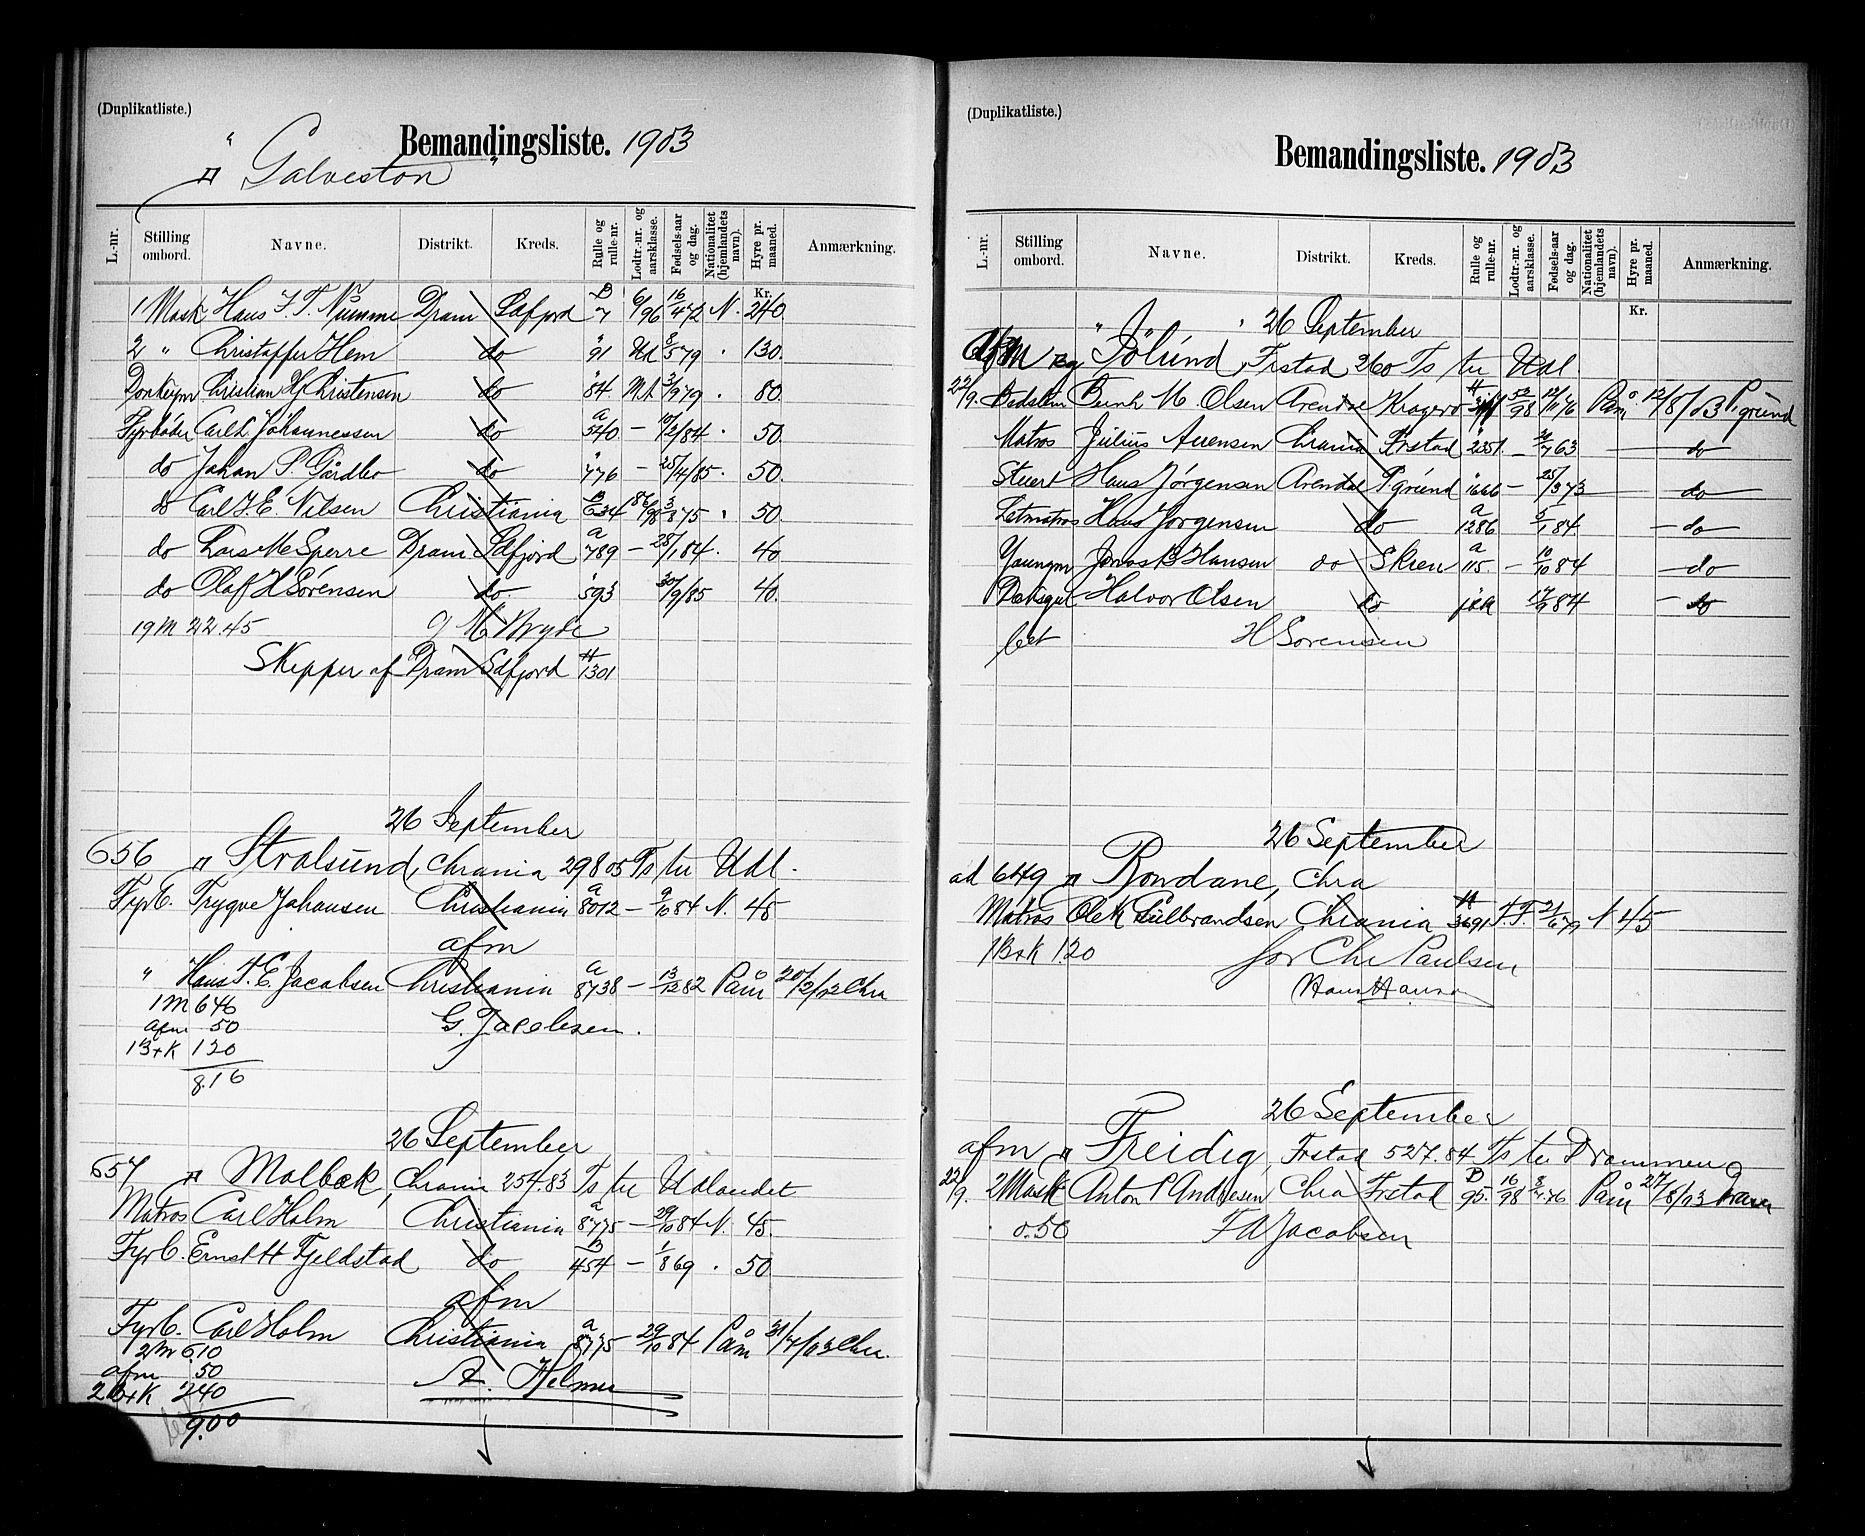 (Duplikatliste.)
Bemandingsliste. 1903
" Galveston "
L.-nr. Stilling ombord. Navne. Distrikt. Kreds. Rulle og rulle-nr. Lodtr.-nr. og aarsklasse. Fødsels-aar og dag. Nationalitet (hjemlandets navn). Hyre pr. maaned. Anmærkning.
Kr.
1 Mask Hans F. T. Numme Dram Sdfjord B 7 6/96 16/4 72 N. 240
2 " Christoffer Hem do " 91 Ud 3/5 79 . 130.
Donkeym Christian Hj Christensen do " 84 M.A 3/9 79 . 80.
Fyrbøder Carl L. Johannessen do a 540 — 10/2/84 . 50.
do Johan P. Gårdbo do " 776 — 25/4/85 . 50.
do Carl F. E. Nilsen Christiania B 634 186/98 3/8 75 . 50.
do Lars M Sperre Dram Sdfjord a 789 — 28/1/84 . 40
do Olaf H Sörensen do " 593 30/9/85 40.
19 M 22.45 M Bryde
Skipper af Dram Sdfjord H 1301
26 September
656 Stralsund, Chrania 298 05 Ts til Udl.
Fyrb. Trygve Johansen Christiania a 8012 — 9/10 84 N. 45
afm
" Hans T. E. Jacobsen Christiania a 8738 — 13/12 82 Påm 20/2/02 Chra
1 M 646
afm 50
1 B+K 120
8.16
G. Jacobsen.
26 September
657 Molbæk, Chrania 254.83 Ts til Udlandet
Matros Carl Holm Christiania a 8775 — 29/10 84 N. 45.
Fyrb. Ernst H Fjeldstad do B 454 — 1/8 69 . 50
afm
Fyrb. Carl Holm Christiania a 8775 29/10 84 Påm 31/7/03 Chra.
2 M 610
afm .50
2 B+K 240
9.00
A. Helmer
(Duplikatliste.)
Bemandingsliste. 1903
L.-nr. Stilling ombord. Navne. Distrikt. Kreds. Rulle og rulle-nr. Lodtr.-nr. og aarsklasse. Fødsels-aar og dag. Nationalitet (hjemlandets navn). Hyre pr. maaned. Anmærkning.
Kr.
26 September
afm "Jölund" Frstad 260 Ts til Udl.
22/9. Bedstem Bernh M. Olsen Arendal Kragerø 52/98 12/11 76 Påm 12/8/03 P.grund
Matros Julius Aurensen Chrania Frstad " 2351. — 20/7 63 — do
Stuert Hans Jörgensen Arendal P.grund " 1666 — 25/3 73 — do
Letmatros Hans Jorgensen do a 1286 5/1 84. — do
Youngm Jonas B Hansen do Skien a 115. — 10/10 84 — do
Dæksgut Halvor Olsen do ikk 17/9 84 — do
bet H Sorensen
26 September
ad 649 Rondane, Chra
Matros Ole K Gulbrandsen Chrania H 3691 F.F. 21/6 79 N 45
1 B+K 1.20 for Chr Paulsen
Hans Hansen
26 September
afm Freidig, Frstad 527.84 Ts til Drammen
22/9. 2 Mask Anton P Andresen Chra Frstad D 95. 16/98 3/4 76 Påm 27/8/03 Dramm
0.50 F A Jacobsen